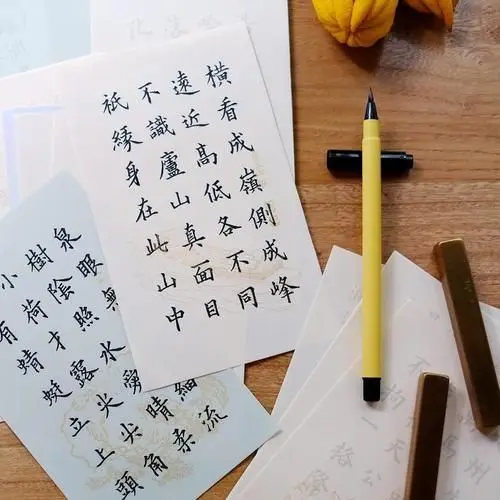 橫看成嶺側成峰
遠近高低各不同
不識廬山真面目
祇緣身在此山中
泉眼無細流
樹陰照水愛晴柔
小荷才露尖尖角
有蜻蜓立上頭
州
天公
不一